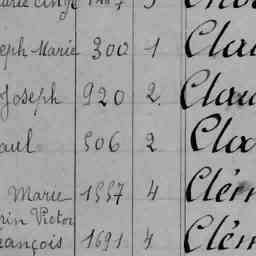 eph Marie 300 1 Cla
Joseph 920 2. Clau
aul 506 2 Clo
Marie 1557 4 Clém
rin Victor
rançois 1691 4 Clém